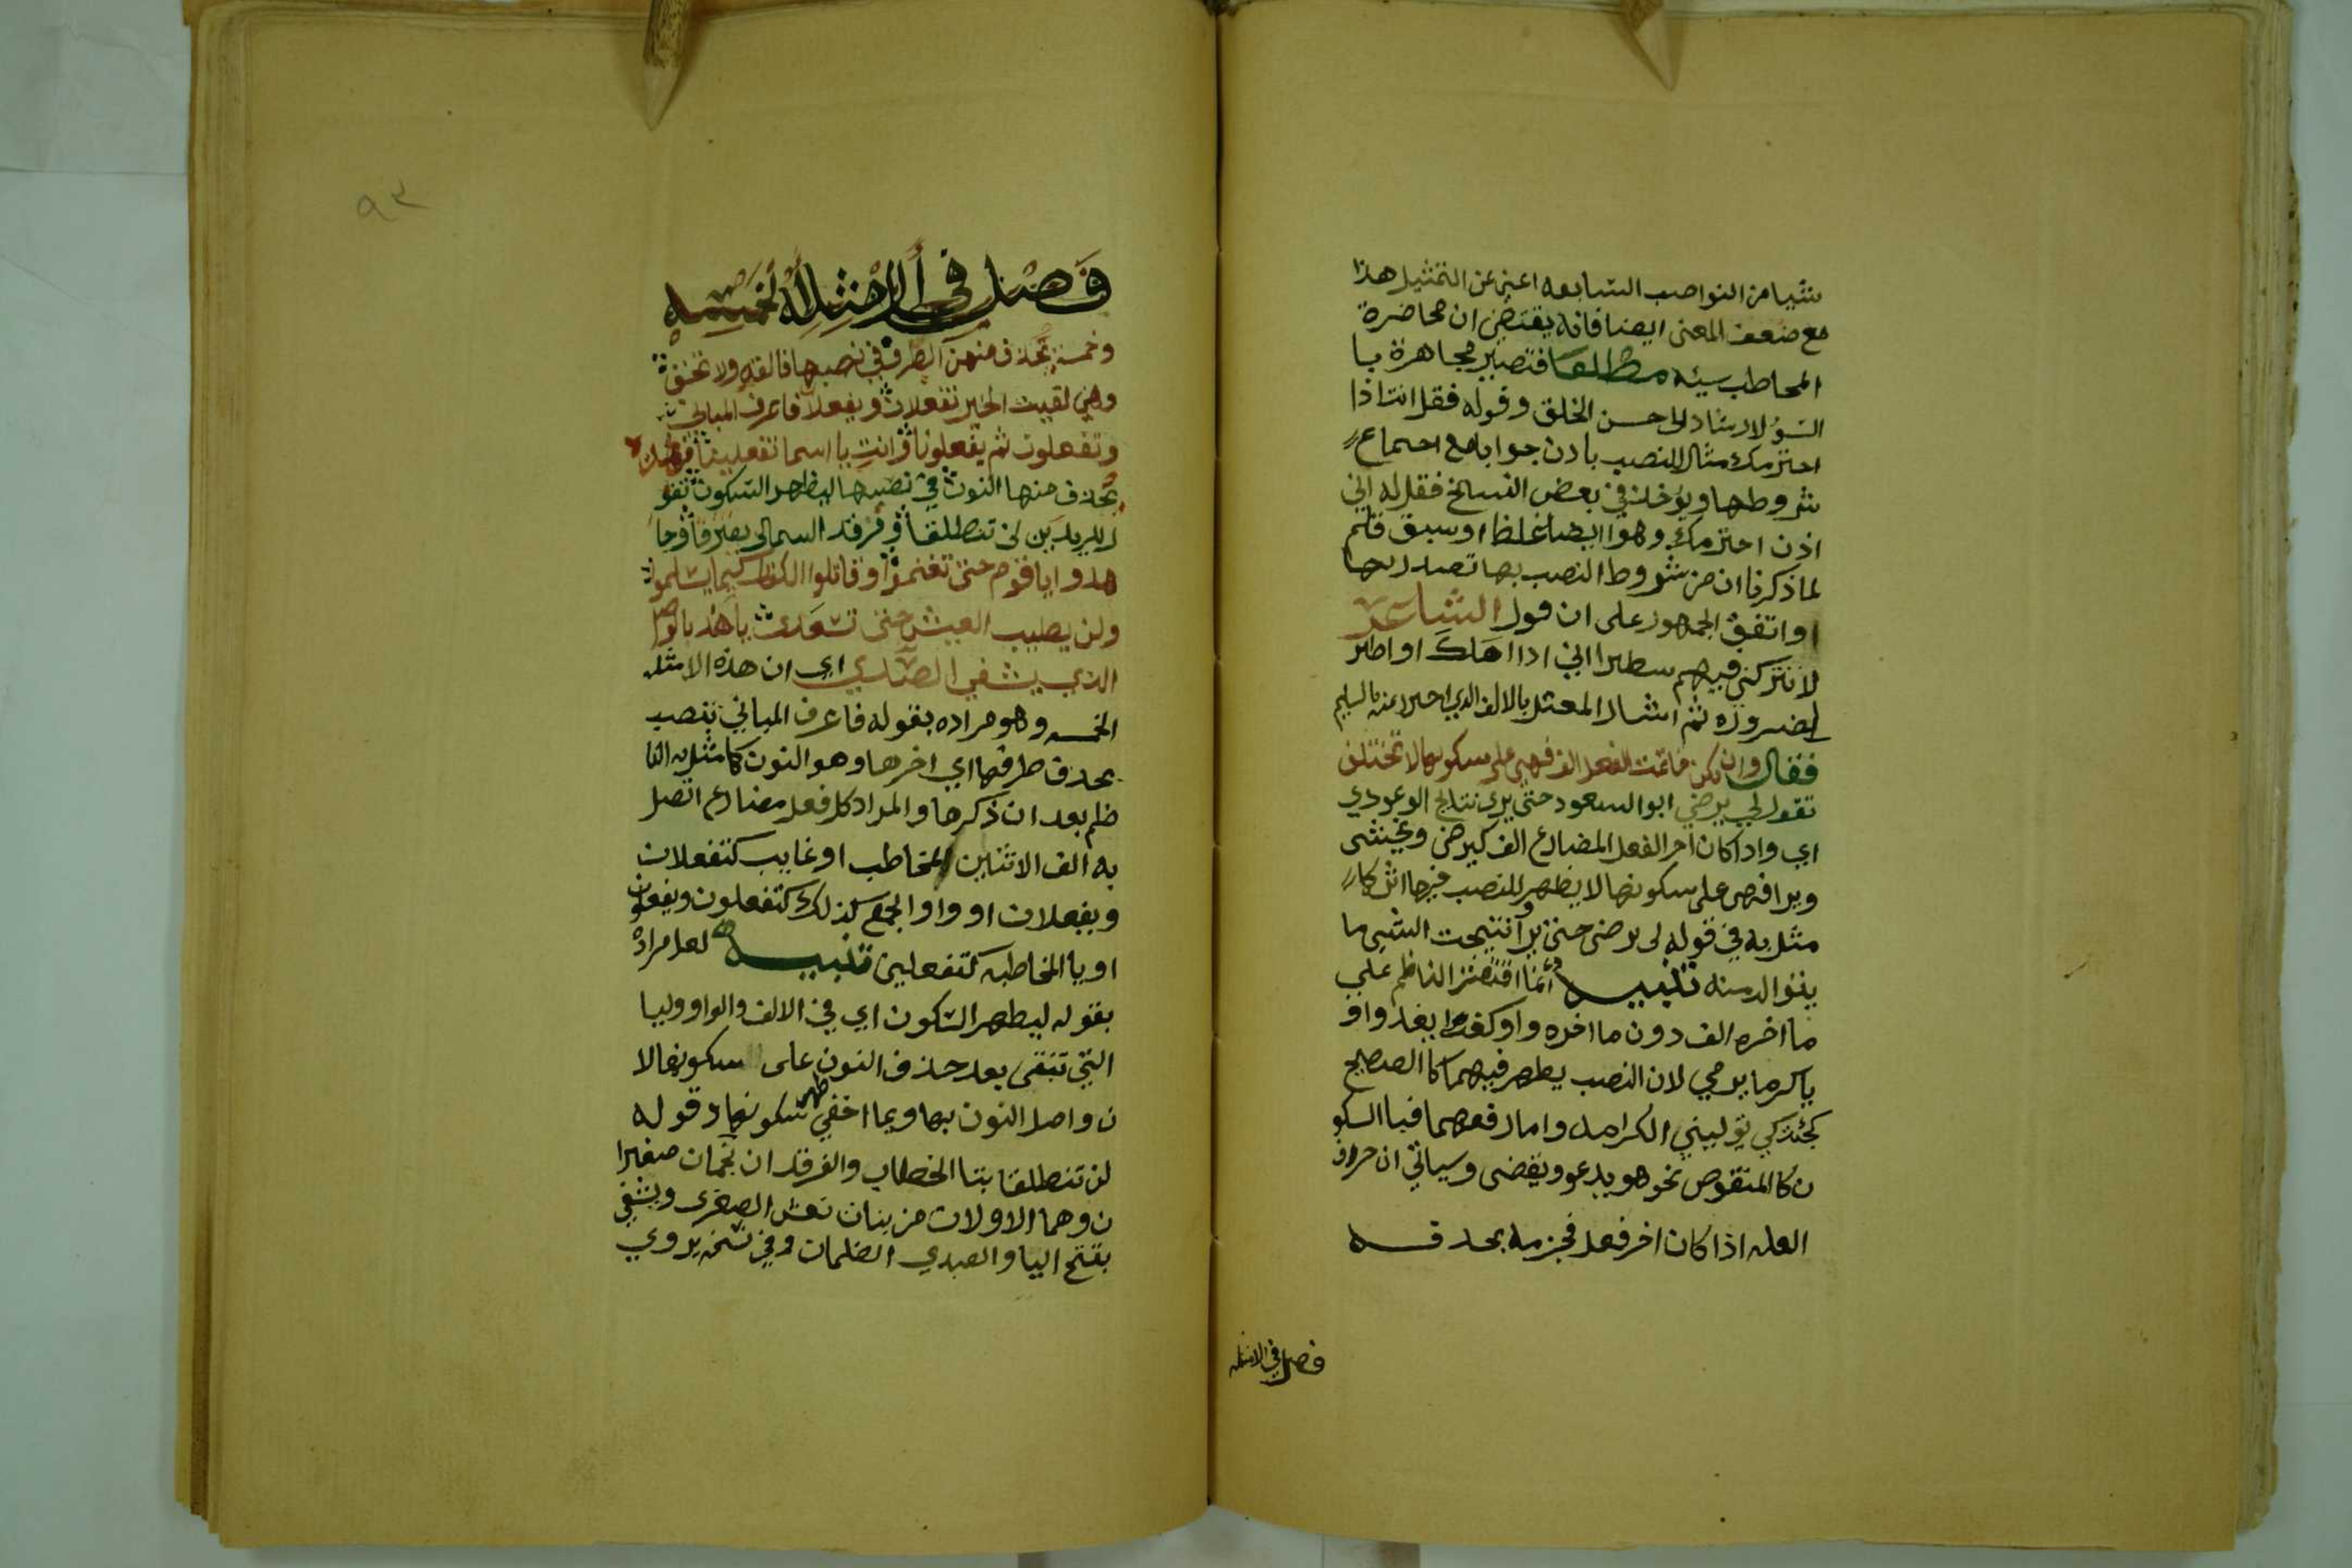 شيا من النواصب السابعه اعني عن التمثيل هذا
مع ضعف المعنى ايضا فانه يقتضي ان محاضرة
المخاطب سيئه مطلقا فتصير مجاهرة با
السؤ لارشاد الى حسن الخلق وقوله فقل انت اذا
احترمك مثال للنصب باذن جوابا مع اجتماع
شروطها ويوخذ في بعض النسخ فقل له اني
اذن احترمك وهو ايضا غلط او سبق قلم
لما ذكرنا ان من شروط النصب بها تصدرها
واتفق الجمهور على ان قول الشاعر
لا تتركني فيهم شطيرا اني اذا اهلك او اطير
لضروره ثم اشار المعتل بالالف الذي احترز عنه بالسليم
فقال وان تكن خاتمت الفعل الف فهي على سكونها لا تختلف
تقول لن يرضي ابو السعود حتى يرى نتايج الوعودي
اي واذا كان اخر الفعل المضارع الف كيرضى ويخشى
ويرا فهي على سكونها لا يظهر للنصب فيها اثر كا
مثل به في قوله لن يرضى حتى يرا ونتيجت الشي ما
يتوالد منه تنبيه وانما اقتصر الناظم على
ما اخره الف دون ما اخره واو كغدا يغدوا او
يا كرما يرمي لان النصب يظهر فيهما كالصحيح
كجئتك كي توليني الكرامه واما رفعهما فبا السكو
ن كالمنقوص نحو هو يدعو ويقضى وسياتي ان حروف
العله اذا كان اخر فعل فجزمه بحذفه
فصل في الامثله
٩٣
فَصْل في الأَمْثِلَه الخمسه
وخمسة تحذف منهن الطرف في نصبها فالقه ولا تخف
وهي لقيت الخير تفعلان ويفعلان فاعرف المباني
وتفعلون ثم يفعلونا وانت يا اسما تفعلينا فهذه
تحذف منها النون في نصبها ليظهر السكون تقو
ل للزيدين لن تنطلقا وفرقدا السما لن يفترقا وجا
هدوا يا قوم حتى تغنموا وقاتلوا الكفار كيما يسلموا
ولن يطيب العيش حتى تسعدي يا هند بالوصل
الذي يشفي الصدي اي ان هذه الامثله
الخمسه وهو مراده بقوله فاعرف المباني تنصب
بحذف طرفها اي اخرها وهو النون كما مثل به النا
ظم بعد ان ذكرها والمراد كل فعل مضارع اتصل
به الف الاثنين المخاطب او غايب كتفعلان
ويفعلان او واو الجمع كذلك كتفعلون ويفعلون
او يا المخاطبه كتفعلين تنبيه لعل مراده
بقوله ليظهر السكون اي في الالف والواو وليا
التي تبقى بعد حذف النون على سكونها لا
ن واصل النون بها وبما اخفي ظهر سكونها وقوله
لن تنطلقا بتا الخطاب والفرقدان نجمان صغيرا
ن وهما الاولان من بنات نعش الصغرى ويشفي
بفتح اليا والصدي الظلمان وفي نسخه يروي